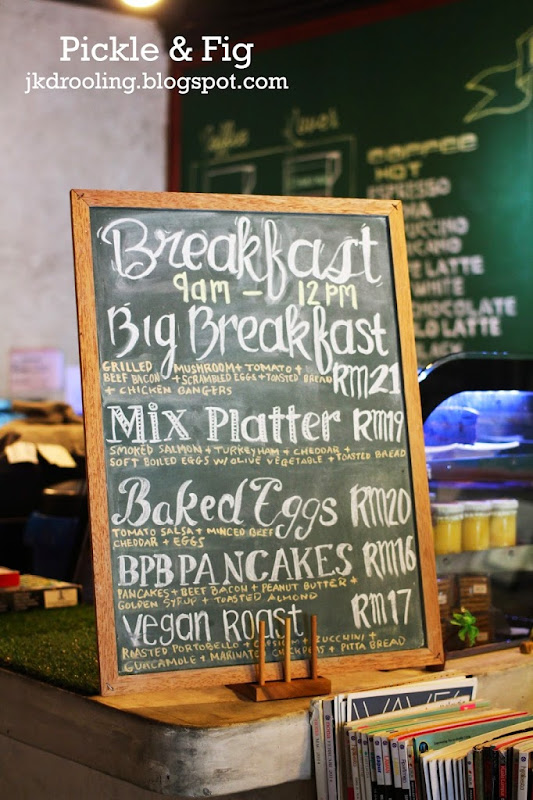 Pickle & Fig
jkdrooling.blogspot.com
COFFEE
HOT
ESPRESSO
LATTE
LATTE
Breakfast
9am - 12pm
Big Breakfast
GRILLED MUSHROOM + TOMATO +
BEEF BACON + SCRAMBLED EGGS + TOASTED BREAD
+ CHICKEN BANGERS
RM21
Mix Platter RM19
SMOKED SALMON + TURKEY HAM + CHEDDAR +
SOFT BOILED EGGS W/ OLIVE VEGETABLE + TOASTED BREAD
Baked Eggs RM20
TOMATO SALSA + MINCED BEEF
CHEDDAR + EGGS
BPB PANCAKES RM16
PANCAKES + BEEF BACON + PEANUT BUTTER +
GOLDEN SYRUP + TOASTED ALMOND
Vegan Roast RM17
ROASTED PORTOBELLO + CAPSICUM + ZUCCHINI +
GUACAMOLE + MARINATED CHICKPEAS + PITTA BREAD